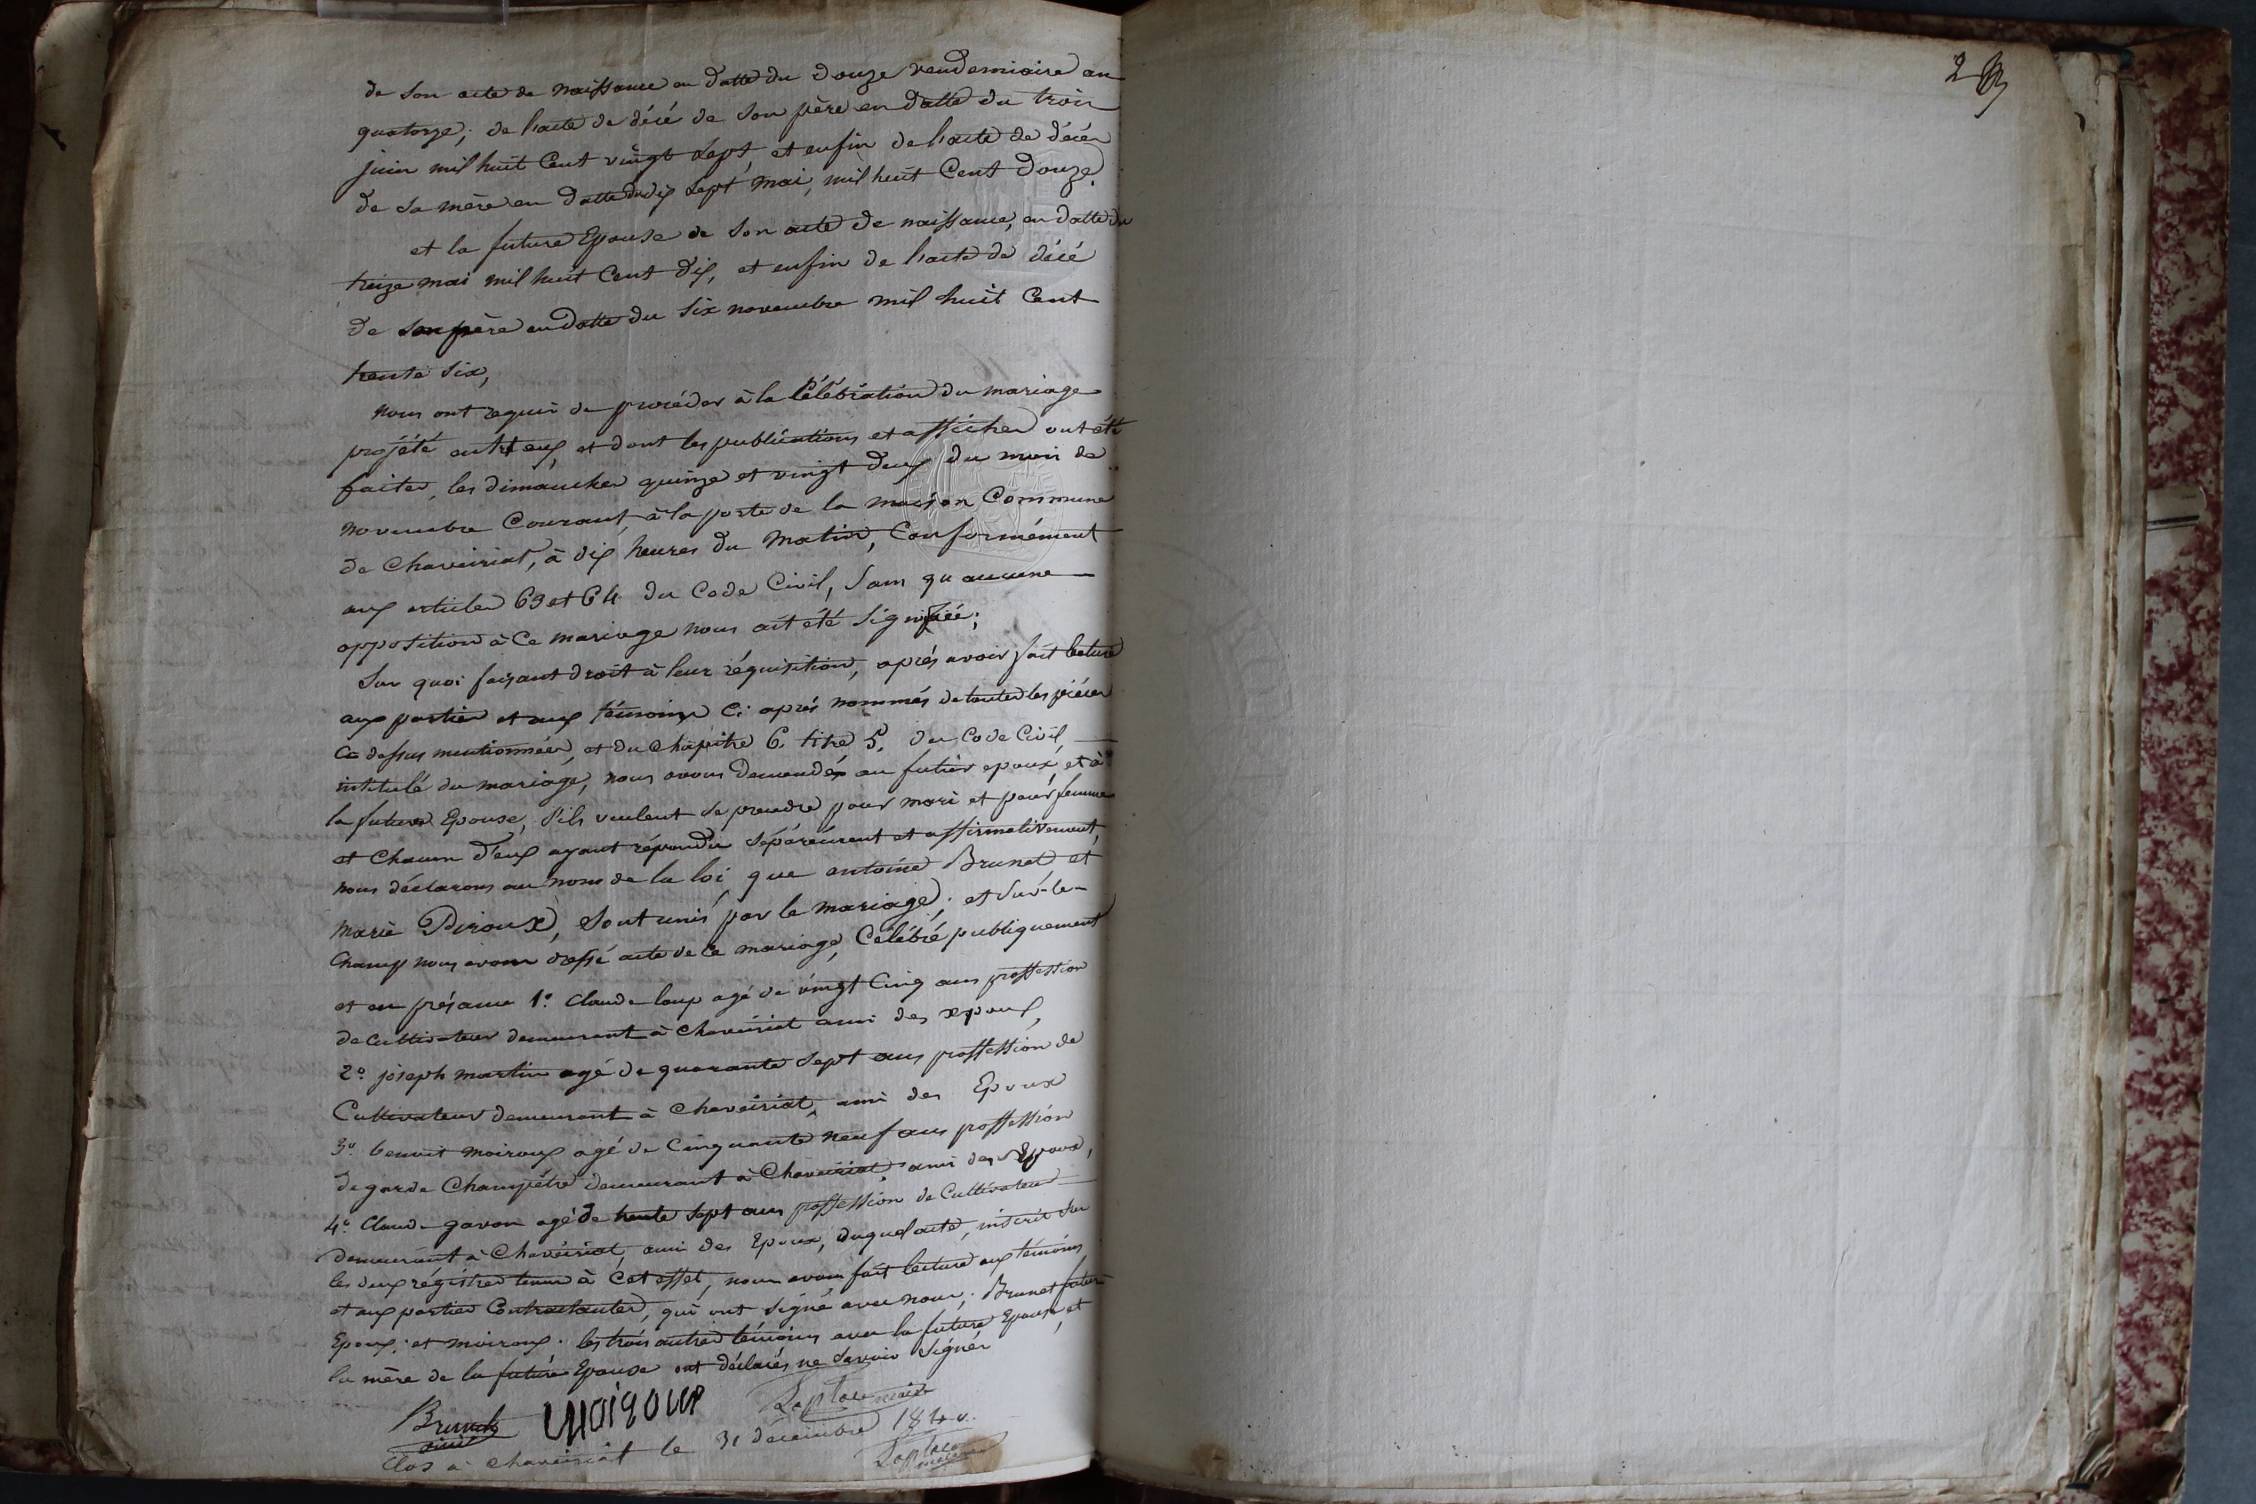 de son acte de naissance en datte du douze vendemiaire an
quatorze; de l'acte de décé de son père en datte du trois
juin mil huit Cent vingt sept, et enfin de l'acte de décés
de sa mère en datte du dix sept mai, mil huit Cent douze.
et la future Epouse de son acte de naissance, en datte du
treize mai mil huit Cent dix, et enfin de l'acte de décé
de son père en datte du six novembre mil huit Cent
trente six,
nous ont requis de procéder à la Célébration du mariage
projété entr eux, et dont les publications et affiches ont été
faites, les dimanches quinze et vingt deux du mois de
novembre Courant, à la porte de la maison Commune
de Chaveiriat, à dix heures du matin, Conformément
aux articles 63 et 64 du Code Civil, sans qu aucune
opposition à Ce mariage nous ait été signifiée;
Sur quoi faisant droit à leur réquisition, aprés avoir fait lecture
aux parties et aux témoins Ci aprés nommés de toutes les piéces
Ci dessus mentionnées, et du Chapitre 6 titre 5. du Code Civil
intitulé du mariage, nous avons demandés au futur epoux, et à
la future Epouse, s'ils veulent se prendre pour mari et pour femme
et Chacun d'eux ayant répondu séparément et affirmativement,
nous déclarons au nom de la loi que antoine Brunet et
marie Piroux, sont unis par le mariage; et sur-le-
Champ nous avons dressé acte de Ce mariage, Célébré publiquement
et en présance 1° Claude loup agé de vingt Cinq ans proffession
de Cultivateur demeurant à Chaveiriat ami des epoux,
2° joseph martin agé de quarante sept ans proffession de
Cultivateur demeurant à Chaveiriat, ami des Epoux
3° benoit moiroux agé de Cinquante neuf ans proffession
de garde Champétre demeurant à Chaveiriat, ami des Epoux,
4° Claude gavon agé de trente sept ans proffession de Cultivateur
demeurant à Chavéiriat, ami des Epoux, duquel acte, inscrit sur
les deux régistres tenus à Cet effet, nous avons fait lecture aux témoins
et aux parties Contractantes, qui ont signé avec nous; Brunet futur
Epoux; et moiroux. les trois autres témoins avec la future Epouse, et
la mère de la future Epouse ont déclarés ne savoir signér
Brunet moiroux Laplace maire
Clos à Chaveiriat le 31 décembre 1840.
Laplace maire